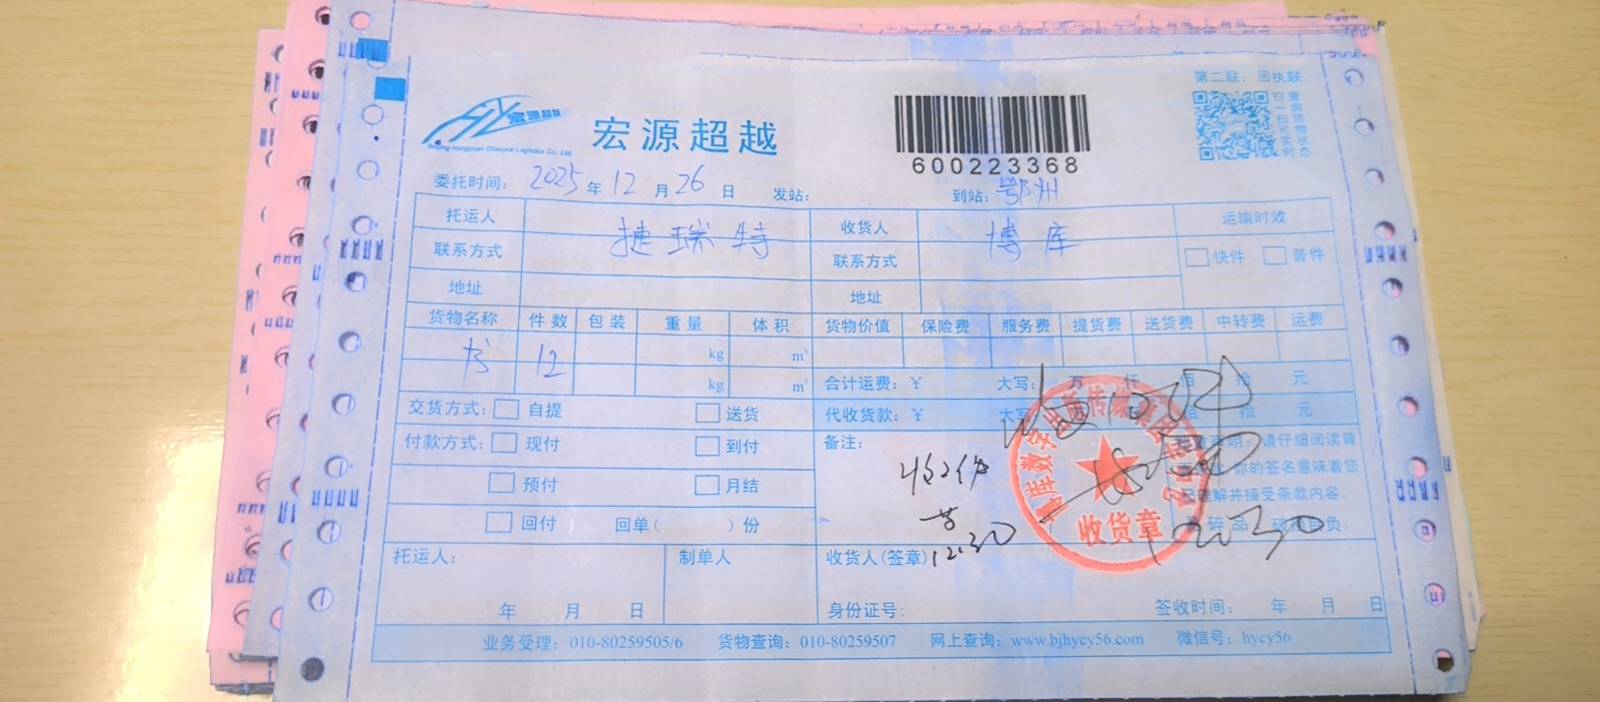 第二联：回执联
宏源超越
宏源超越
Beijing Hongyuan Chaoyue Logistics Co., Ltd.
扫一扫可实时
查询货物状态
600223368
委托时间： 2025 年 12 月 26 日 发站： 到站：鄂州
托运人 捷瑞特 收货人 博库 运输时效
联系方式 联系方式 快件 普件
地址 地址
货物名称 件数 包装 重量 体积 货物价值 保险费 服务费 提货费 送货费 中转费 运费
书 12 kg m³
kg m³ 合计运费：￥ 大写： 万 仟 佰 拾 元
交货方式： 自提 送货 代收货款：￥ 大写 佰 拾 元
付款方式： 现付 到付 备注： 请仔细阅读背
你的签名意味着您
预付 月结 理解并接受条款内容。
回付 回单( )份 碎品 破损自负.
收2件
12.30
12.30
收货章
托运人： 制单人 收货人(签章)
年 月 日 身份证号： 签收时间： 年 月 日
业务受理：010-80259505/6 货物查询：010-80259507 网上查询：www.bjhycy56.com 微信号：hycy56